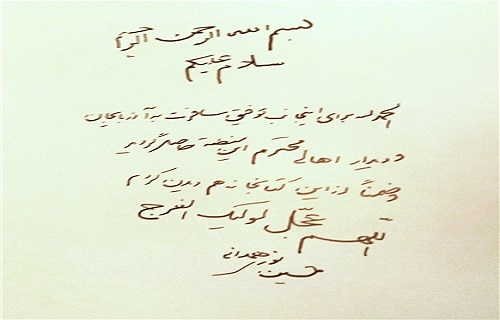 بسم الله الرحمن الرحیم
سلام علیکم
الحمدلله برای اینجانب توفیق مسافرت به آذربایجان
و دیدار اهالی محترم این منطقه حاصل گردید
و ضمناً از این کتابخانه هم دیدن کردم
اللهم عجّل لولیک الفرج
حسین نوری همدانی